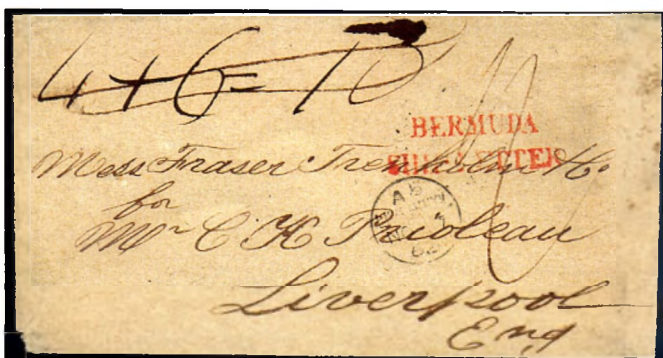 4 + 6 = 10
BERMUDA
SHIP LETTER
Mess Fraser Trenholm & Co
for
Mr C K Prioleau
Liverpool
Eng